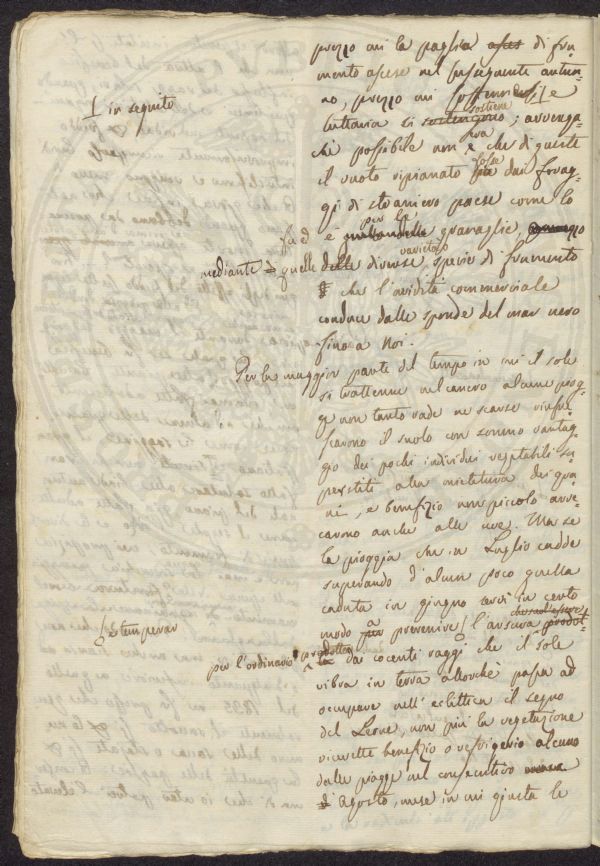 prezzo cui la paglia di fru-
mento ascese nel susseguente autun-
no, prezzo cui
I in seguito
tuttavia si sostiene; avvenga-
chè possibile non era che di questi
il vuoto ripianato fosse dai forag-
gi di straniero paese come lo
fu d e per le granaglie,
mediante quelle diverse specie di frumento
varietà o
che l'avidità commerciale
conduce dalle sponde del mar nero
fino a Noi.
Per la maggior parte del tempo in cui il sole
si trattenne nel cancro alcune piog-
ge non tanto rade ne scarse rinfre-
scarono il suolo con sommo vantag-
gio dei pochi individui vegetabili su-
perstiti alla mietitura dei gra-
ni, e benefizio non piccolo arre-
carono anche alle uve. Ma se
la pioggia che in Luglio cadde
superando d'alcun poco quella
caduta in giugno servì in certo
modo a prevenire l'arsura
stemperar
per l'ordinario prodotta
dai cocenti raggi che il sole
vibra in terra allorchè passa ad
occupare nell'eclittica il segno
del Leone, non più la vegetazione
ricevette benefizio o refrigerio alcuno
dalle piogge nel consecutivo
Agosto, mese in cui giusta le